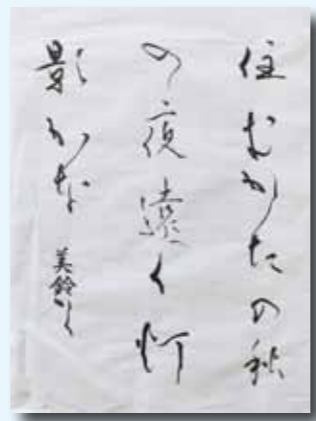 住むかたの秋
の夜遠く灯
影かな 美鈴かく